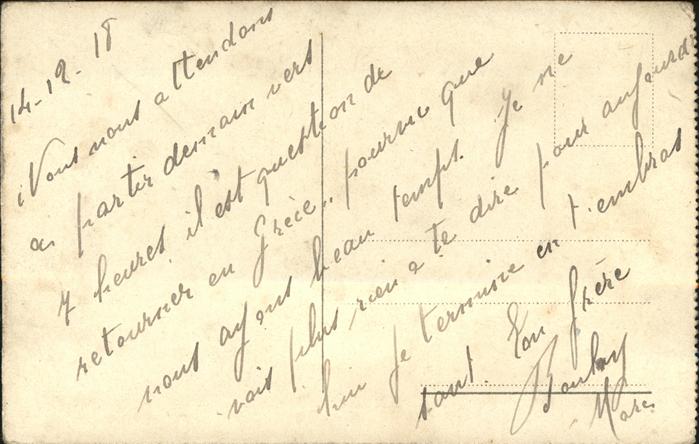 14-12-18
Nous nous attendons
a partir demain vers
7 heures, il est question de
retourner en Grèce.. pourvu que
nous ayons beau temps. Je ne
vois plus rien a te dire pour aujourd
hui je termine en t'embras
sant. Ton frère